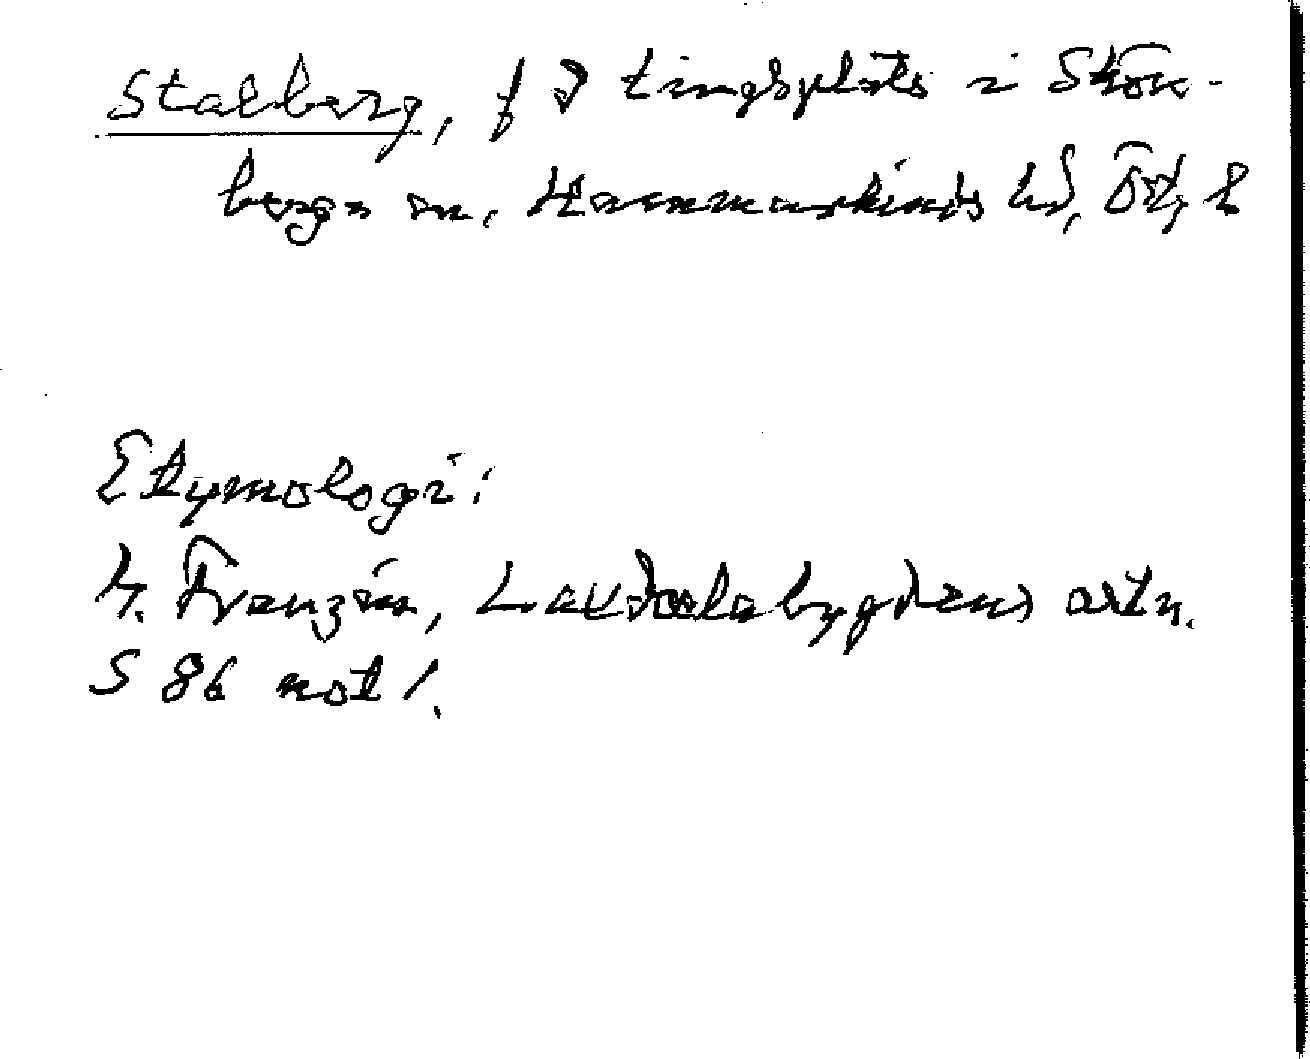 Stalberg, f d tingsplats i Skön-
berga sn, Hammarkinds hd, Östg l
Etymologi:
G. Franzén, Laxdælabygdens ortn.
S 86 not 1.